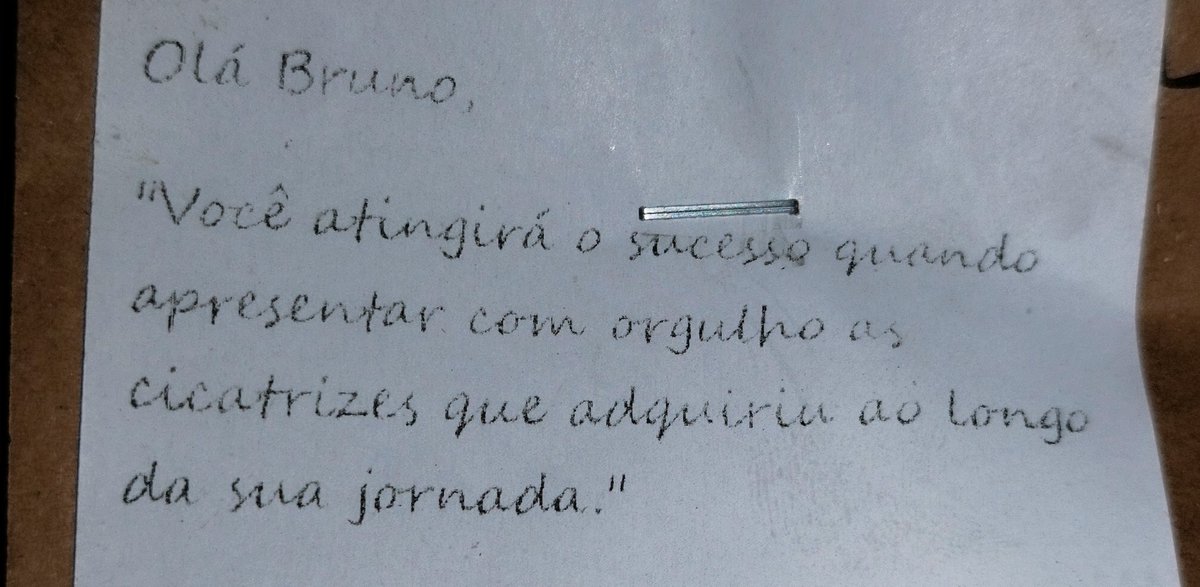 Olá Bruno,
"Você atingirá o sucesso quando
apresentar com orgulho as
cicatrizes que adquiriu ao longo
da sua jornada."